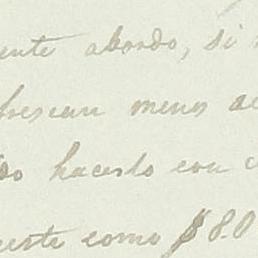 ente abordo, si
frescan menos
do hacerlo con
cueste como $80